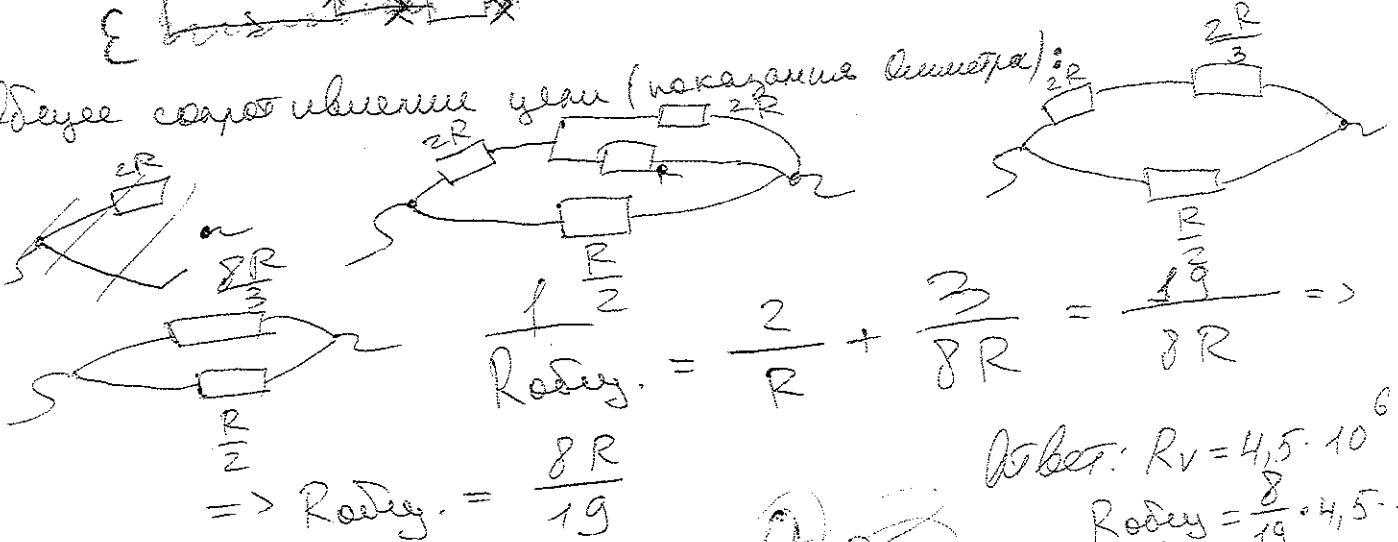 ε
Общее сопротивление цепи (показания Омметра):
2R
2R
2R
R
R/2
2R
2R/3
R/2
8R/3
R/2
1/Rобщ. = 2/R + 3/8R = 19/8R =>
=> Rобщ. = 8R/19
Ответ: Rv = 4,5·10⁶
Rобщ = 8/19·4,5·